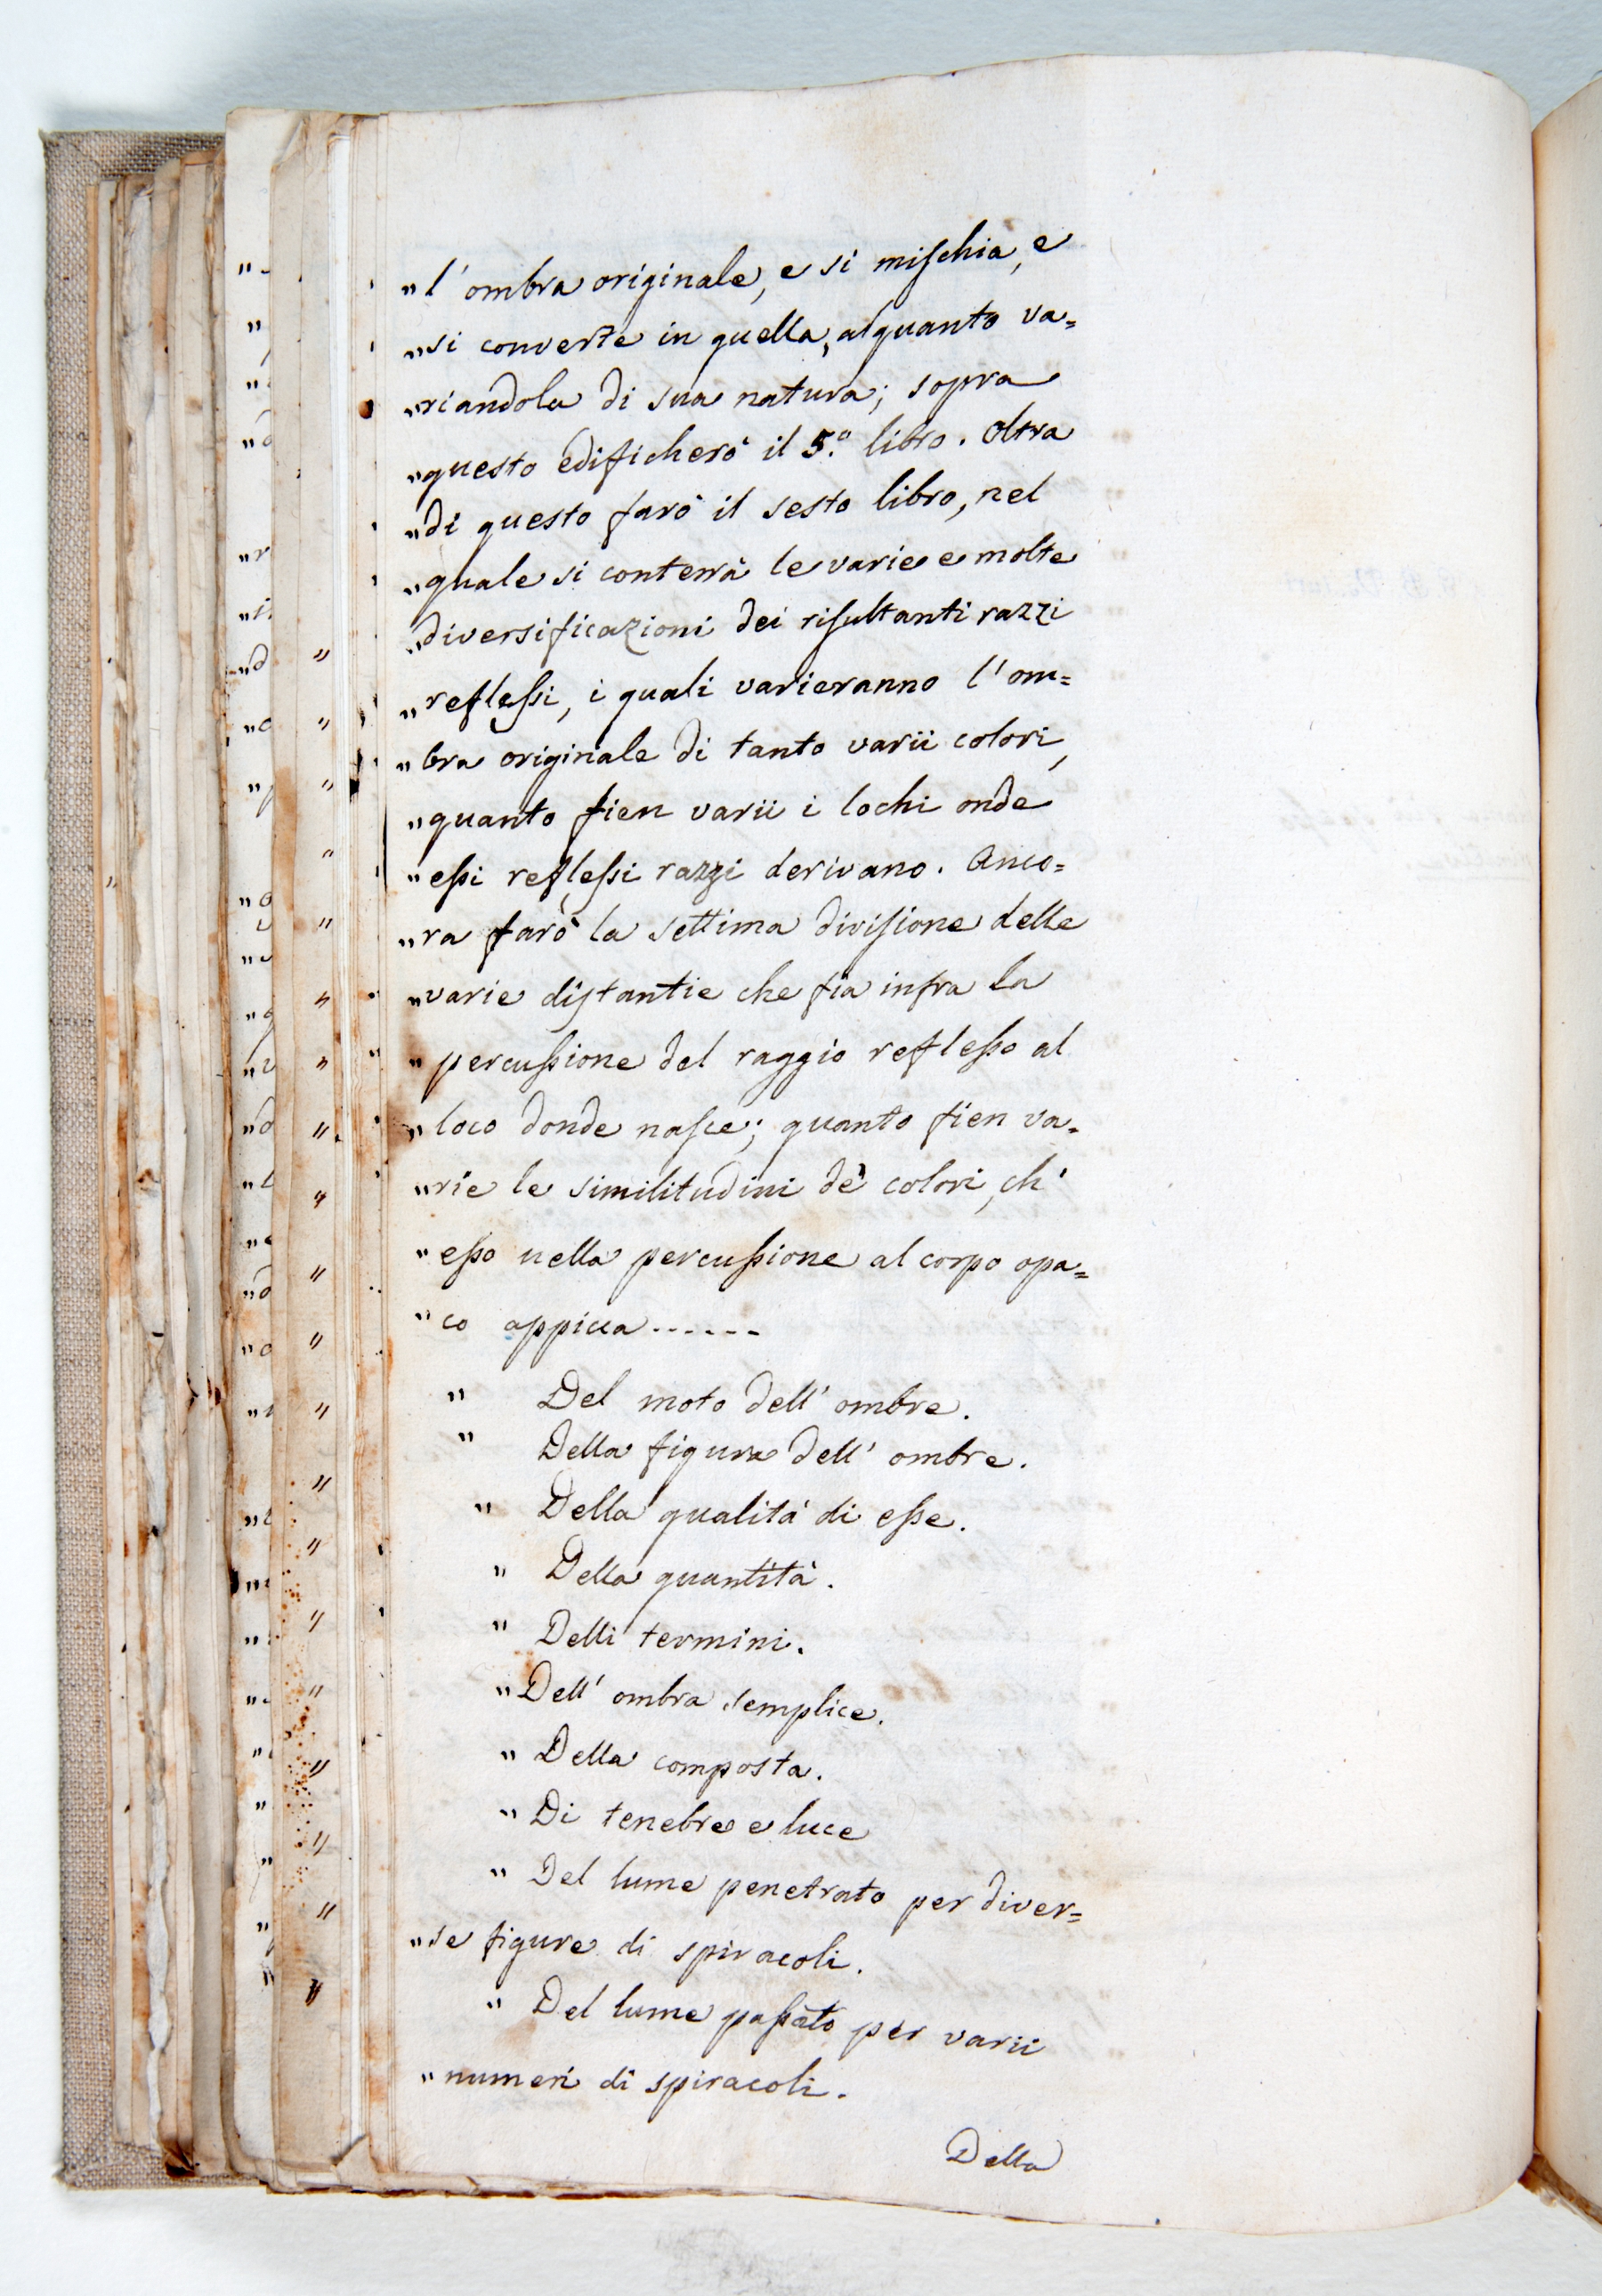 „l' ombra originale, e si mischia, e
„si converte in quella, alquanto va=
„riandola di sua natura; sopra
„questo edificherò il 5.° libro. Oltra
„di questo farò il sesto libro, nel
„quale si conterrà le varie e molte
„diversificazioni dei risultanti razzi
„reflessi, i quali varieranno l' om=
„bra originale di tanto varii colori,
„quanto fien varii i lochi onde
„essi reflessi razzi derivano. Anco=
„ra farò la settima divisione delle
„varie distantie che fia infra la
„percussione del raggio reflesso al
„loco donde nasce; quanto fien va=
„rie le similitudini de' colori, ch'
„esso nella percussione al corpo opa=
„co appicca......
„ Del moto dell' ombre.
„ Della figura dell' ombre.
„ Della qualità di esse.
„ Della quantità.
„ Delli termini.
„ Dell' ombra semplice.
„ Della composta.
„ Di tenebre e luce
„ Del lume penetrato per diver=
„se figure di spiracoli.
„ Del lume passato per varii
„numeri di spiracoli.
Della